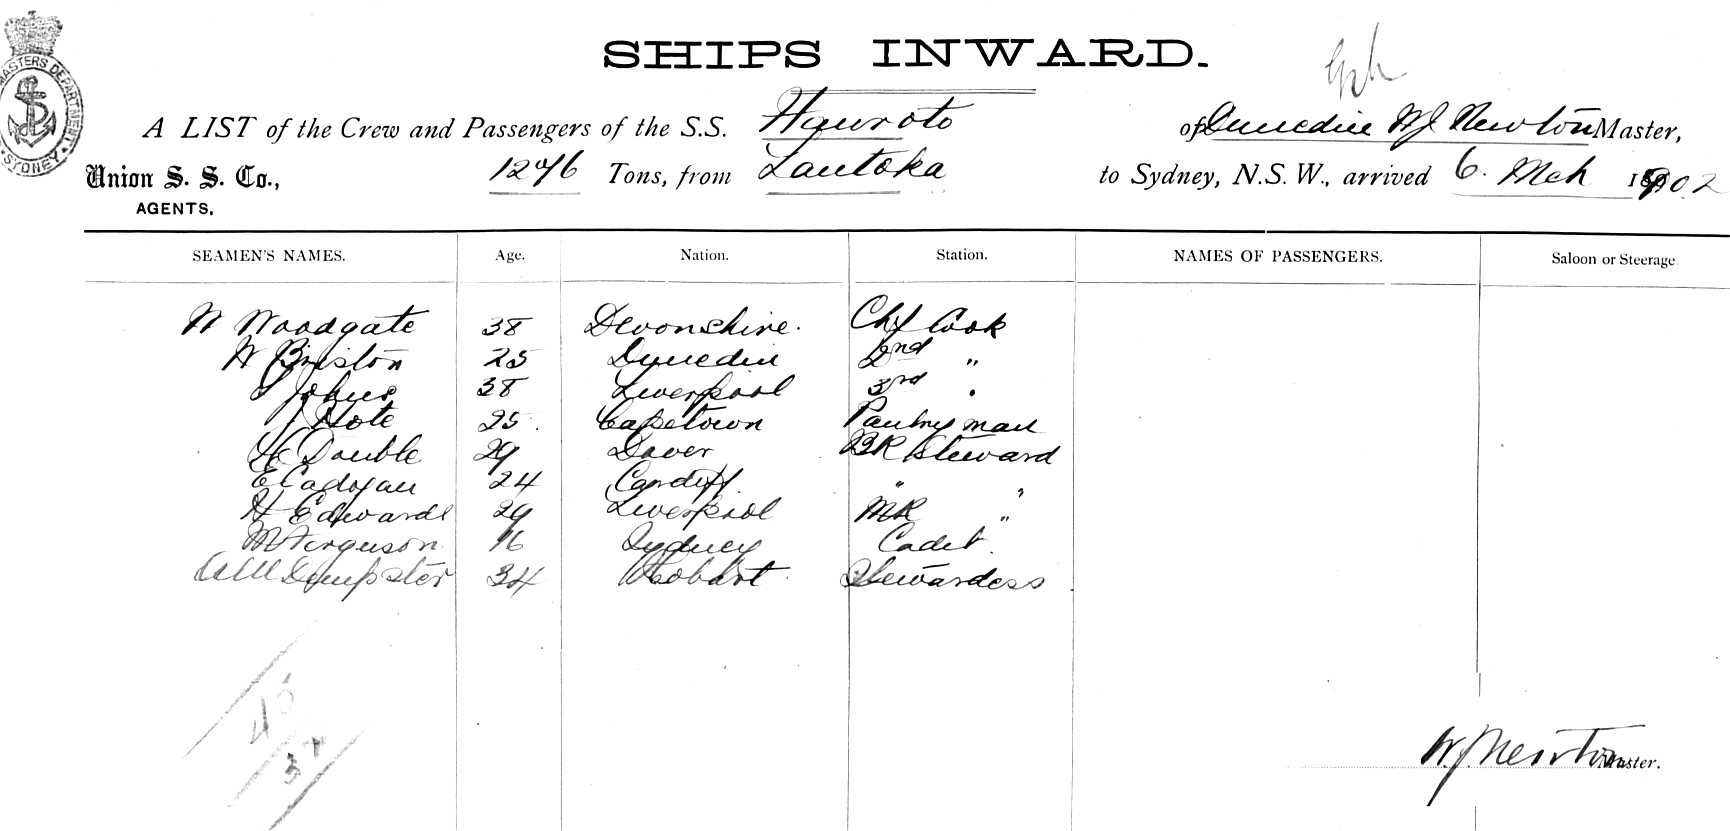 SHIPS INWARD.
MASTERS DEPARTMENT
SYDNEY
A LIST of the Crew and Passengers of the S.S. Hauroto of Dunedin W J Newton Master,
Union S. S. Co., 1276 Tons, from Lautoka to Sydney, N.S.W., arrived 6. Mch 1902
AGENTS.
SEAMEN'S NAMES. Age. Nation. Station. NAMES OF PASSENGERS. Saloon or Steerage
W Woodgate 38 Devonshire. Chf Cook
W Briston 25 Dunedin 2nd "
J Johns 38 Liverpool 3rd "
J Hote 25. Capetown Pantryman
H Double 29 Dover BR Steward
E Cadogan 24 Cardiff " "
H Edwards 29 Liverpool MR "
M Ferguson 16 Sydney Cadet.
Dempster 34 Hobart Stewardess
45
34
W. J. Newton Master.